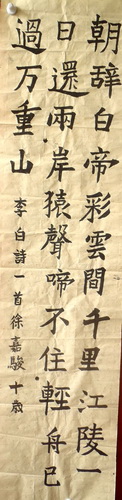 朝辭白帝彩雲間千里江陵一
日還兩岸猿聲啼不住輕舟已
過万重山
李白詩一首徐嘉駿十歲